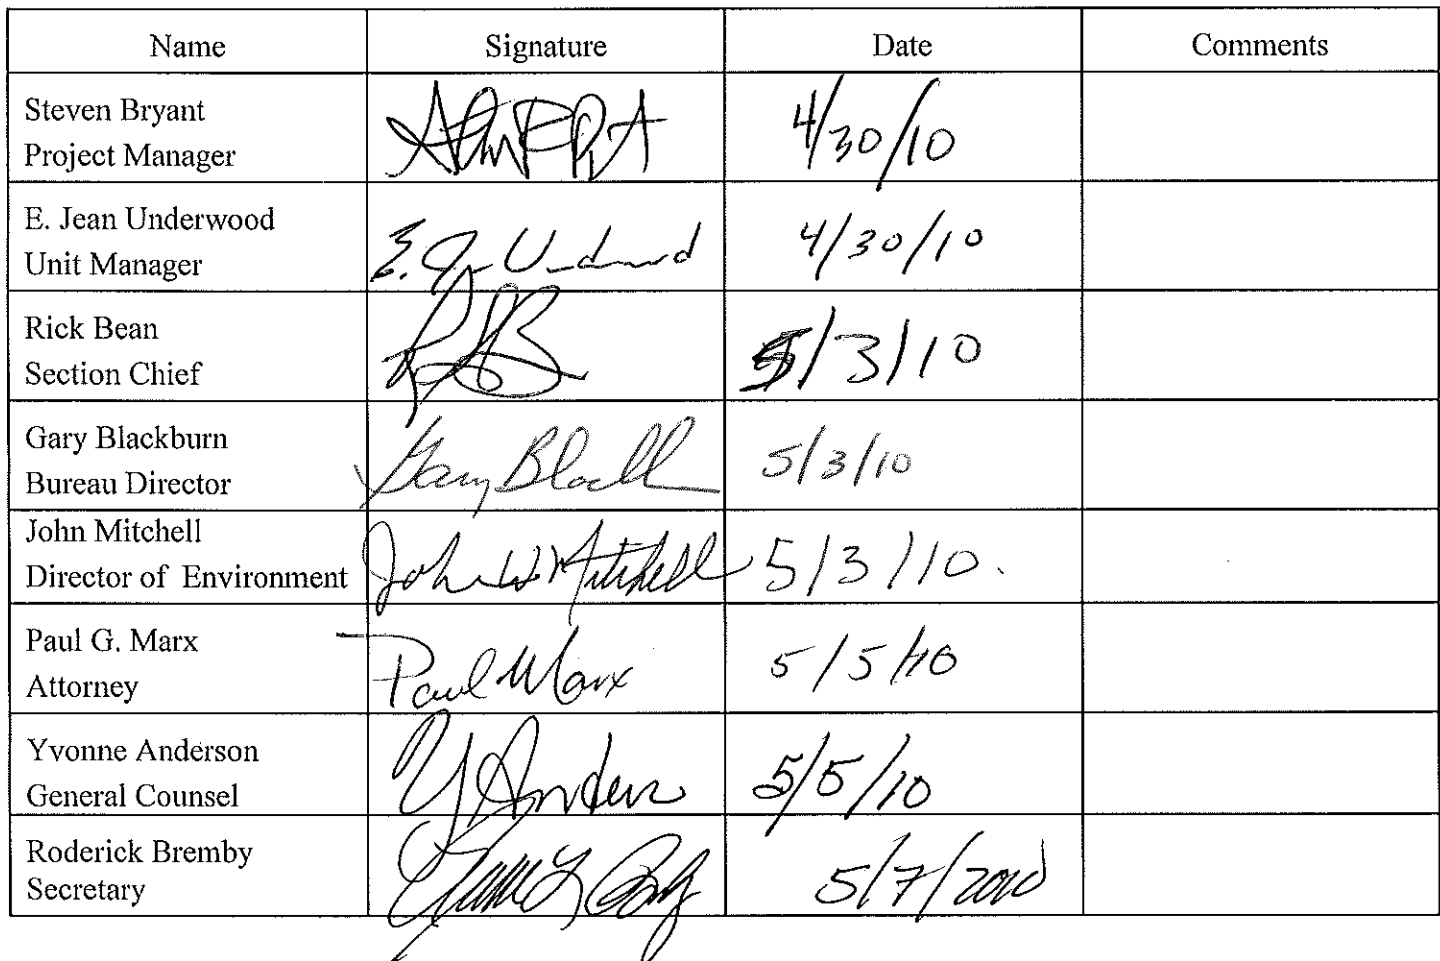 Name Signature Date Comments
Steven Bryant
Project Manager
4/30/10
E. Jean Underwood
Unit Manager
E. Jean Underwood
4/30/10
Rick Bean
Section Chief
5/3/10
Gary Blackburn
Bureau Director
Gary Blackburn
5/3/10
John Mitchell
Director of Environment
John W Mitchell
5/3/10.
Paul G. Marx
Attorney
Paul Marx
5/5/10
Yvonne Anderson
General Counsel
Y Anderson
5/5/10
Roderick Bremby
Secretary
5/7/2010